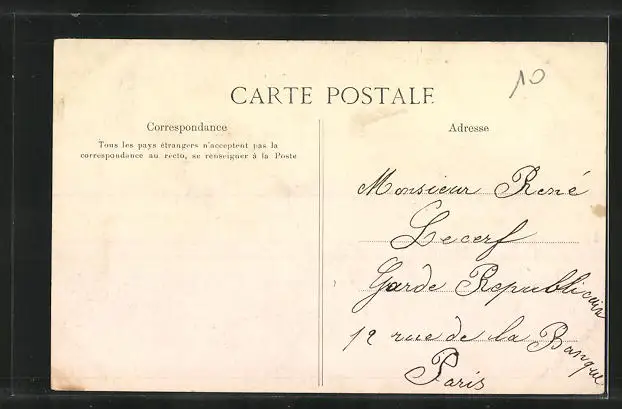 10
CARTE POSTALE
Correspondance
Tous les pays étrangers n'acceptent pas la
correspondance au recto, se renseigner à la Poste
Adresse
Monsieur René
Lecerf
Garde Republicain
12 rue de la Banque
Paris